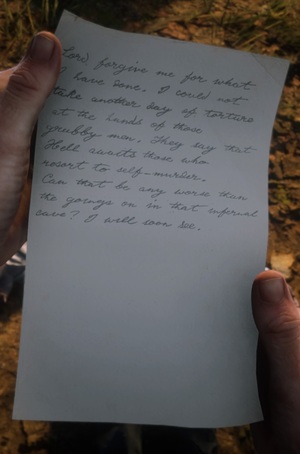 Lord forgive me for what
I have done. I could not
take another day of torture
at the hands of those
grubby men. They say that
Hell awaits those who
resort to self-murder.
Can that be any worse than
the goings on in that infernal
cave? I will soon see.